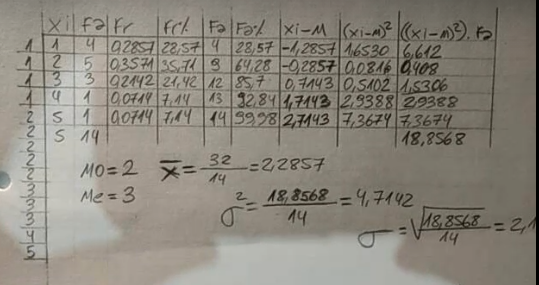 Xi fa Fr Fr% Fa Fa% Xi-M (Xi-M)² ((Xi-M)²).Fa
1 1 4 0,2857 28,57 4 28,57 -1,2857 1,6530 6,612
1 2 5 0,3571 35,71 9 64,28 -0,2857 0,0816 0,408
1 3 3 0,2142 21,42 12 85,7 0,7143 0,5102 1,5306
1 4 1 0,0714 7,14 13 92,84 1,7143 2,9388 2,9388
2 5 1 0,0714 7,14 14 99,98 2,7143 7,3674 7,3674
2 5 14 18,8568
2
2
2
3
3
3
4
5
Mo=2 x̅=32/14=2,2857
Me=3
σ²=18,8568/14=4,7142
σ=√18,8568/14=2,1